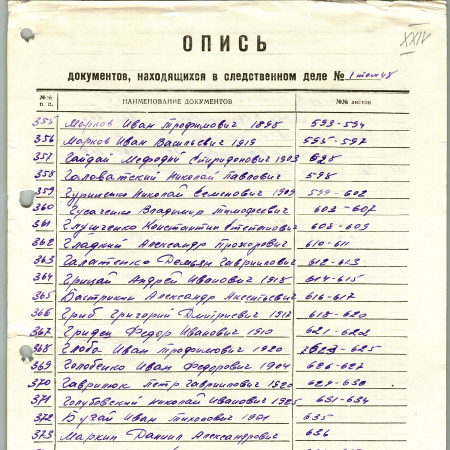 XXIV
ОПИСЬ
документов, находящихся в следственном деле № 1 том 48
№№ п. п. НАИМЕНОВАНИЕ ДОКУМЕНТОВ №№ листов
355 Марков Иван Трофимович 1898 593-594
356 Марков Иван Васильевич 1919 595-597
357 Гайдай Мефодий Спиридонович 1903 628
358 Головатский Николай Павлович 598
359 Гуриненко Николай Семенович 1909 599-602
360 Гусаченко Владимир Тимофеевич 603-607
361 Глущенко Константин Степанович 608-609
362 Гладкий Александр Прохорович 610-611
363 Галатенко Гаврилович 612-613
364 Грицай Андрей Иванович 1918 614-615
365 Бастрикин Александр Аксентьевич 616-617
366 Гриб Григорий Дмитриевич 1917 618-620
367 Гридец Федор Иванович 1910 621-622
368 Глоба Иван Трофимович 1920 623-625
369 Голобенко Иван Федорович 1904 626-627
370 Гаврилюк Петр Гаврилович 1920 629-630
371 Голубовский Николай Иванович 1925 631-634
372 Бугай Иван Тихонович 1901 635
373 Маркин Даниил Александрович 636